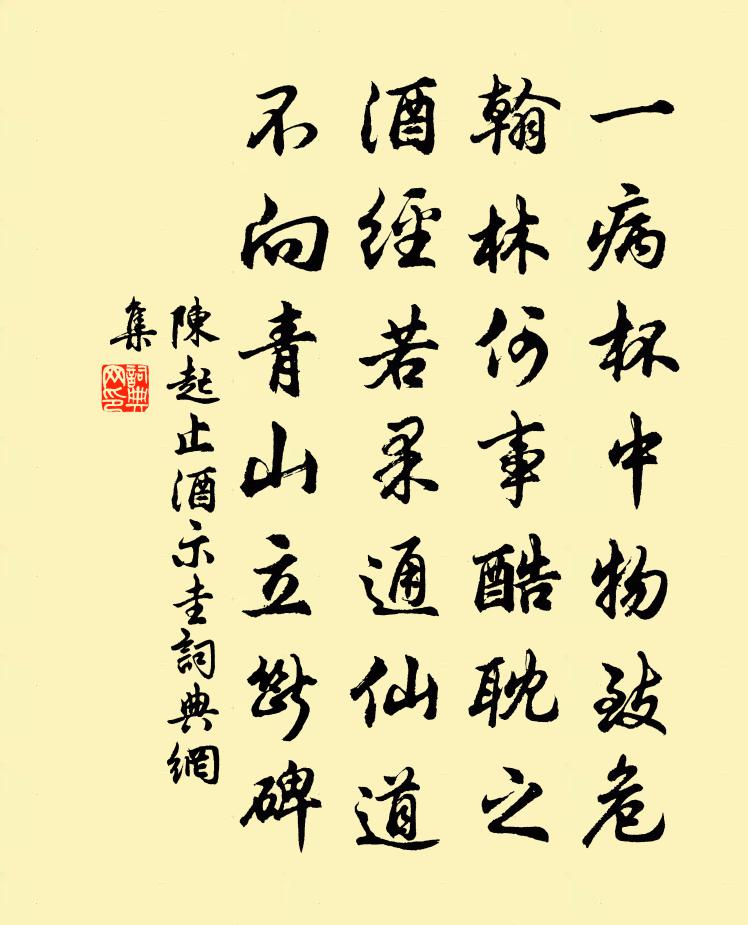 一病杯中物致危
翰林何事酷耽之
酒經若果通仙道
不向青山立斷碑
陳起止酒示圭詞典網
集
詞典網印